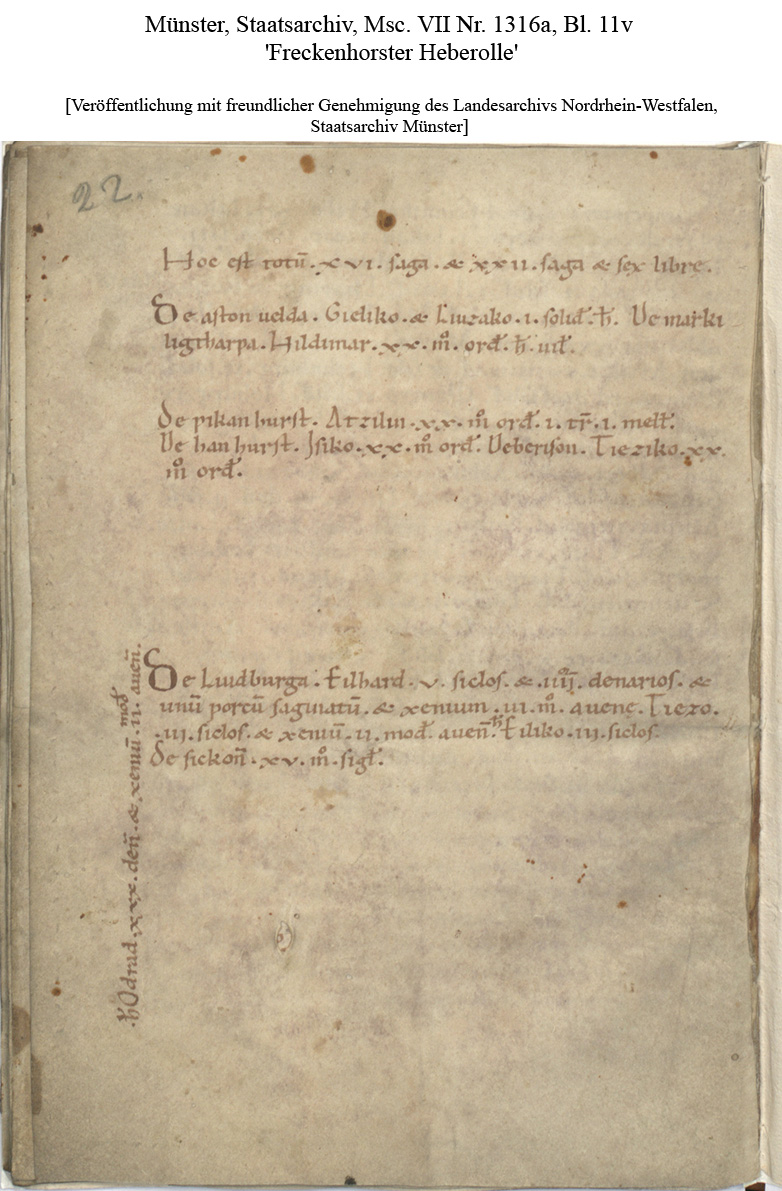 Münster, Staatsarchiv, Msc. VII Nr. 1316a, Bl. 11v
'Freckenhorster Heberolle'
[Veröffentlichung mit freundlicher Genehmigung des Landesarchivs Nordrhein-Westfalen,
Staatsarchiv Münster]
22.
Hoc est totū . xvi . saga . & xxii . saga & sex libre .
De aston uelda . Gieliko . & Liuzako . i . solid̄ . h̄ . De marki
ligtharpa . Hildimar . xx . m̊ . ord̄ . h̄ . uil̄ .
De pikan hurst . Atzilin . xx . m̊ ord̄ . i . tr̄ . i . mell̄ .
De han hurst . Jsiko . xx . m̊ ord̄ . De berison . Tieziko . xx .
m̊ ord̄ .
De Liudburga . Eilhard . v . siclos . & . iiij . denarios . &
unū porcū saginatū . & xenium . vi . m̊ . auenę . Tiezo .
. iii . siclos . & xeniū . ii . mod̄ . auen̄ . h̄ Eiliko . iii . siclos .
De sickon̄ . xv . m̊ . sigl̄ .
. h̄ Odrad . xxx . den̄ . & xeniū . ii . mod̄ auen̄ .